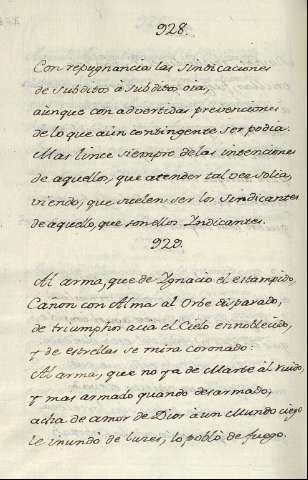 928.
Con repugnancia las Sindicaciones
de Subditos à Subditos oìa,
aùnque con advertidas prevenciones
de lo que aùn contingente ser podìa.
Mas lince siempre delas intenciones
de aquellos, que atender tal vez solìa,
viendo, que suelen ser los Sindicantes
de aquello, que son ellos Yndicantes.
929.
Al arma, que de Ygnacio el estampido,
Cañon con Alma al Orbe disparado,
de triumphos acia el Cielo ennoblecido,
y de estrellas se mira coronado:
Al arma, que no ya de Marte àl ruido,
y mas armado quando desarmado,
acha de amor de Dios à un Mundo ciego
le inundò de luces, lo poblò de fuego.